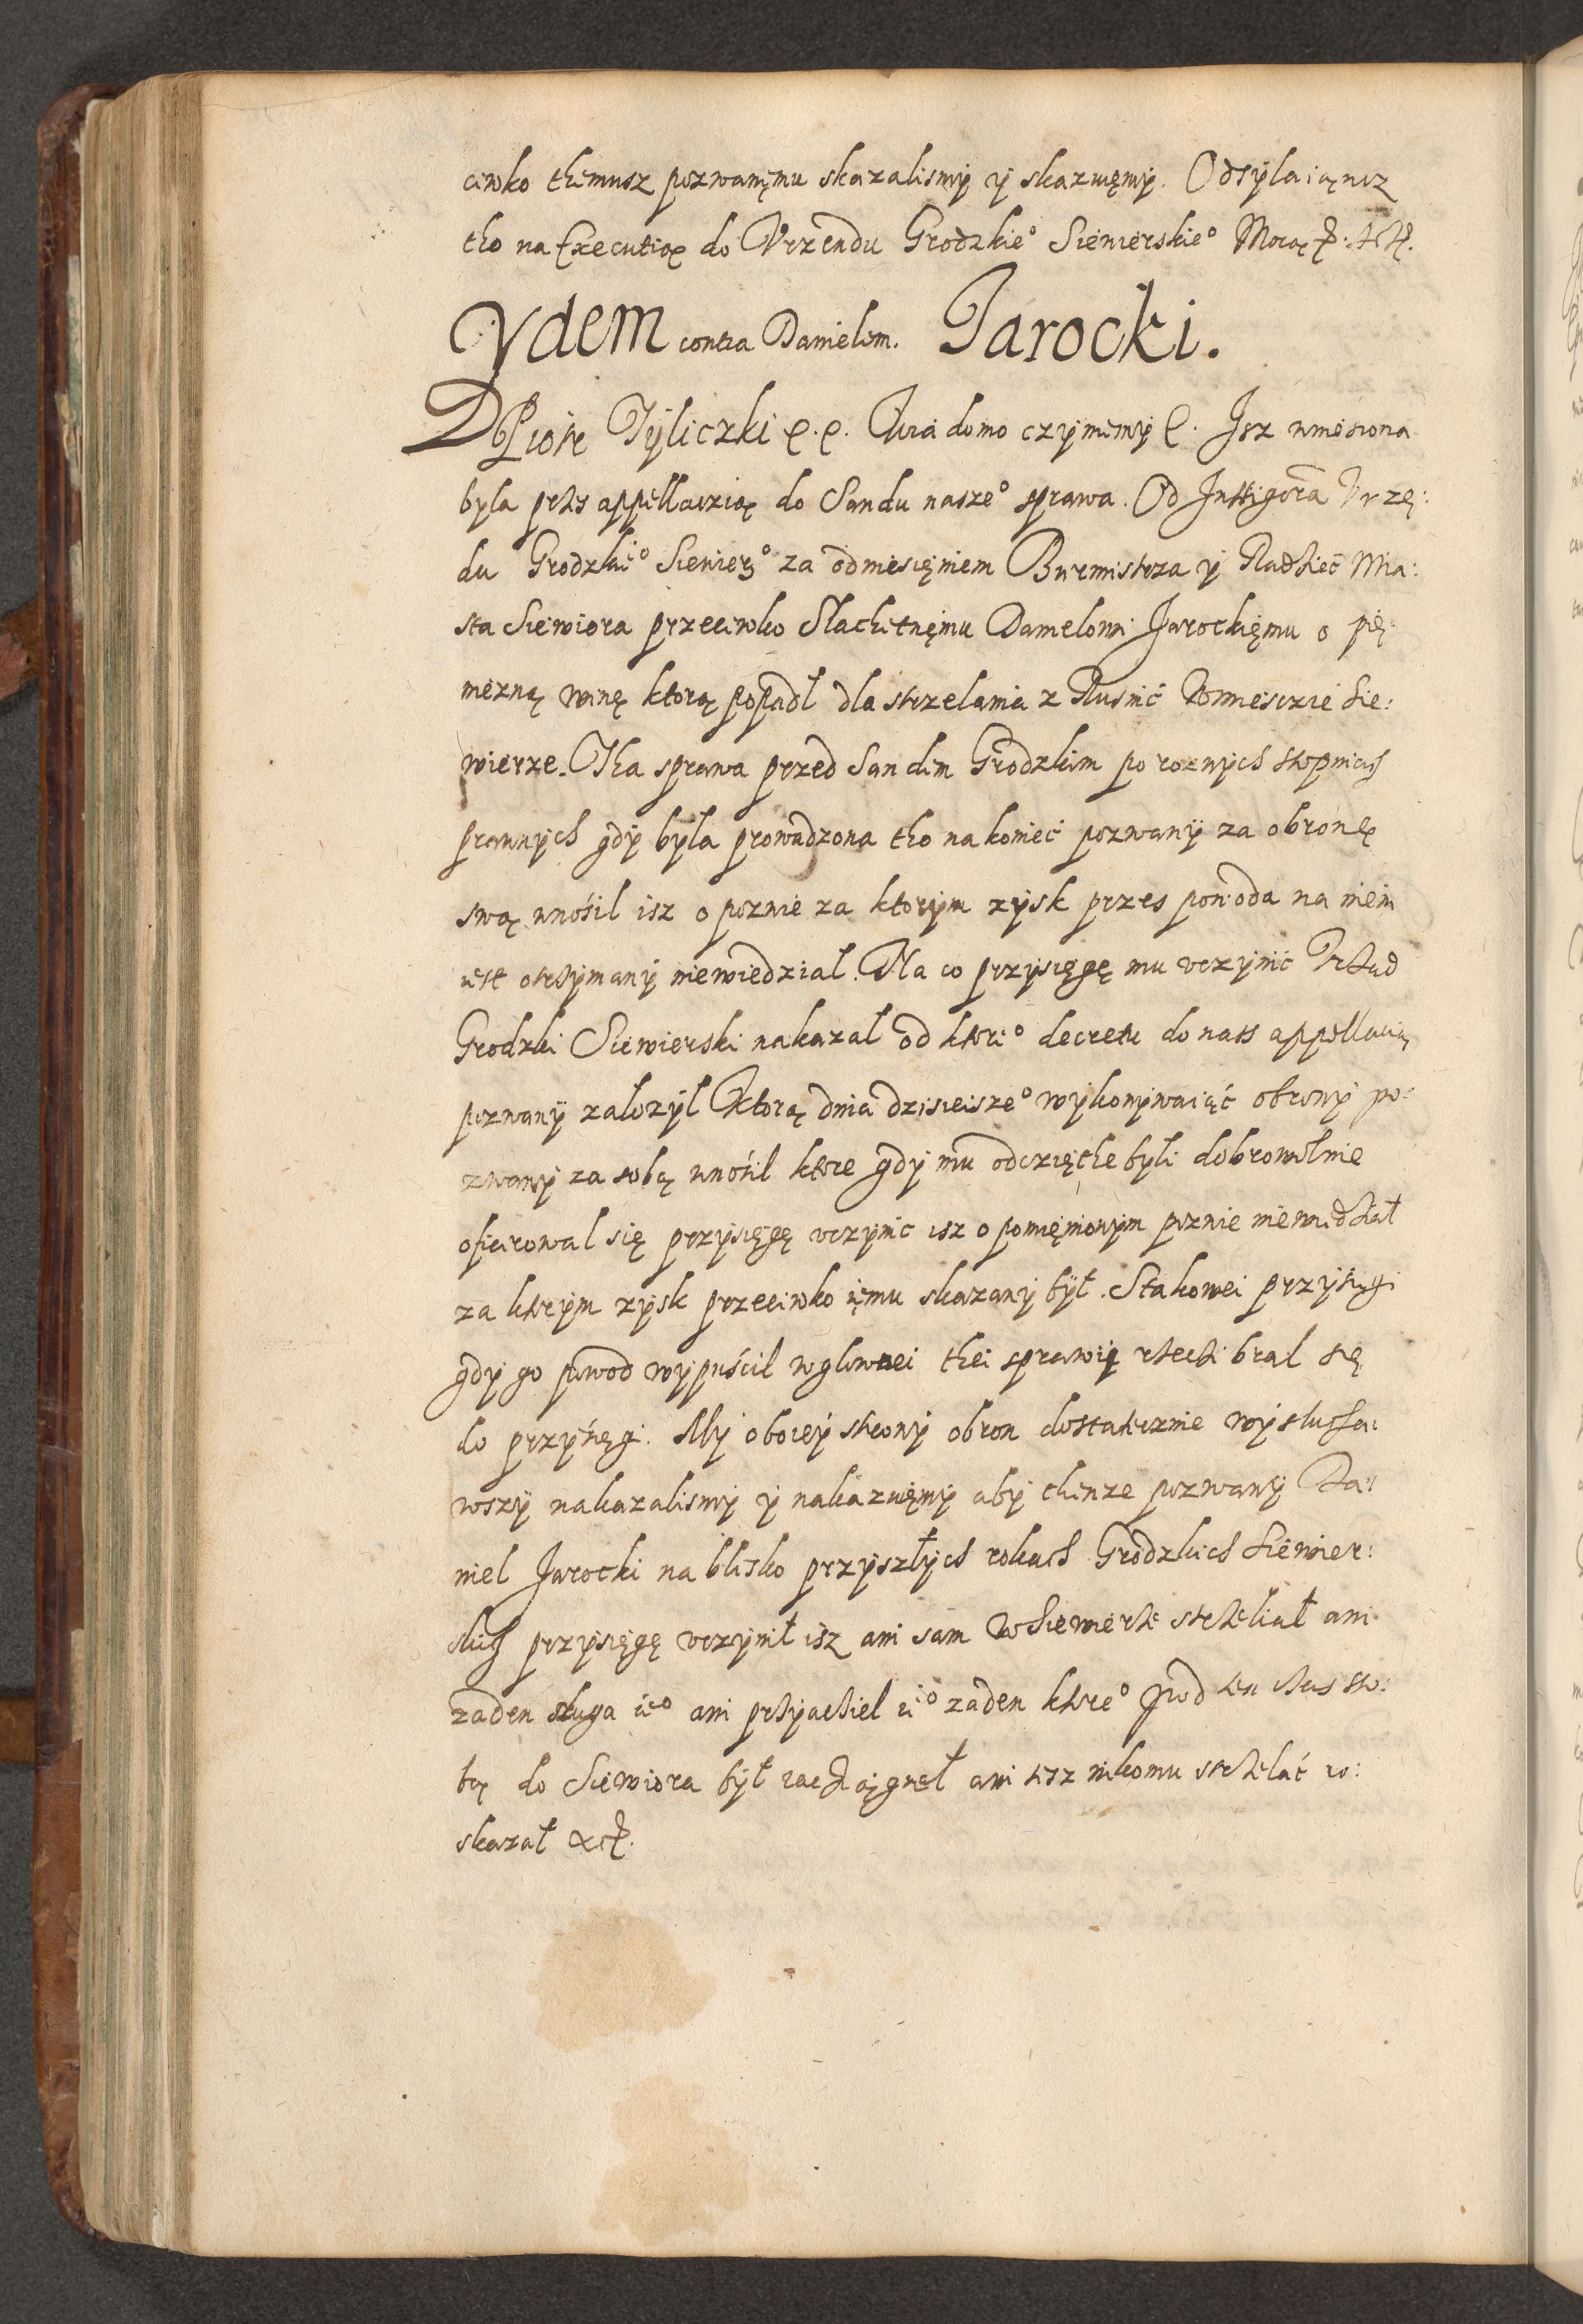 ciwko themusz pozwanęmu skazalismÿ ÿ skazuięmÿ. Odsÿlaiącz
tho na Executią do Vrzendu Grodzkieº Siewierskieº Mocą
Ydem contra Danielem. Jarocki.
Piotr Tÿliczki e. e. Wiadomo czÿniemÿ e. Isz wniesiona
byla przes appellaczią do Sandu naszeº sprawa. Od Instigora Vrzę:
du Grodzkieº Siewierº za odniesięniem Burmistrza ÿ Radziec Mia:
sta Siewiora przeciwko Slachetnęmu Danielowi Jarockięmu o pię:
nieżną winę ktorą popadl dla strzelania z Rusnic w miesczie Sie:
wierze. Tha sprawa przed Sandem Grodzkim po roznÿch stopniach
prawnÿch gdÿ bÿla prowadzona tho na koniec pozwanÿ za obronę
swą wnósil isz o poznie za ktorÿm zÿsk przes powoda na niem
iest otrzÿmanÿ niewiedzial. Na co przÿsięgę mu vczÿnić Vrząd
Grodzki Siewierski nakazal od ktoreº decretu do nass appellacią
pozwanÿ zalozÿl Ktorą dnia dzisieiszeº wÿkonÿwaiąć obronÿ po:
zwanÿ za sobą wnósil ktore gdÿ mu odczięthe bÿli dobrowolnie
ofiarowal się przÿsięgę vczÿnic isz o pomięnionÿm poznie niewiedzial
za ktorÿm zÿsk przeciwko ięmu skazanÿ bÿł. S takowei przÿsięgi
gdÿ go powod wÿpuścil w glownei thei sprawię rzeczi bral się
do przÿsięgi. Mÿ oboieÿ stronÿ obron dostatecznie wÿsłucha:
wszÿ nakazalismÿ ÿ nakazuięmÿ abÿ thenze pozwanÿ Da:
niel Jarocki na blisko przÿszłÿch rokach Grodzkich Siewier:
skich przÿsięgę vczÿnił isz ani sam w Siewierze strzeliał ani
zaden sługa ieº ani przÿaciel ieº zaden ktoreº pod ten czas so:
bą do Siewiora bÿł zaciągnął ani tesz nikomu strzelać ro:
skazał &c.